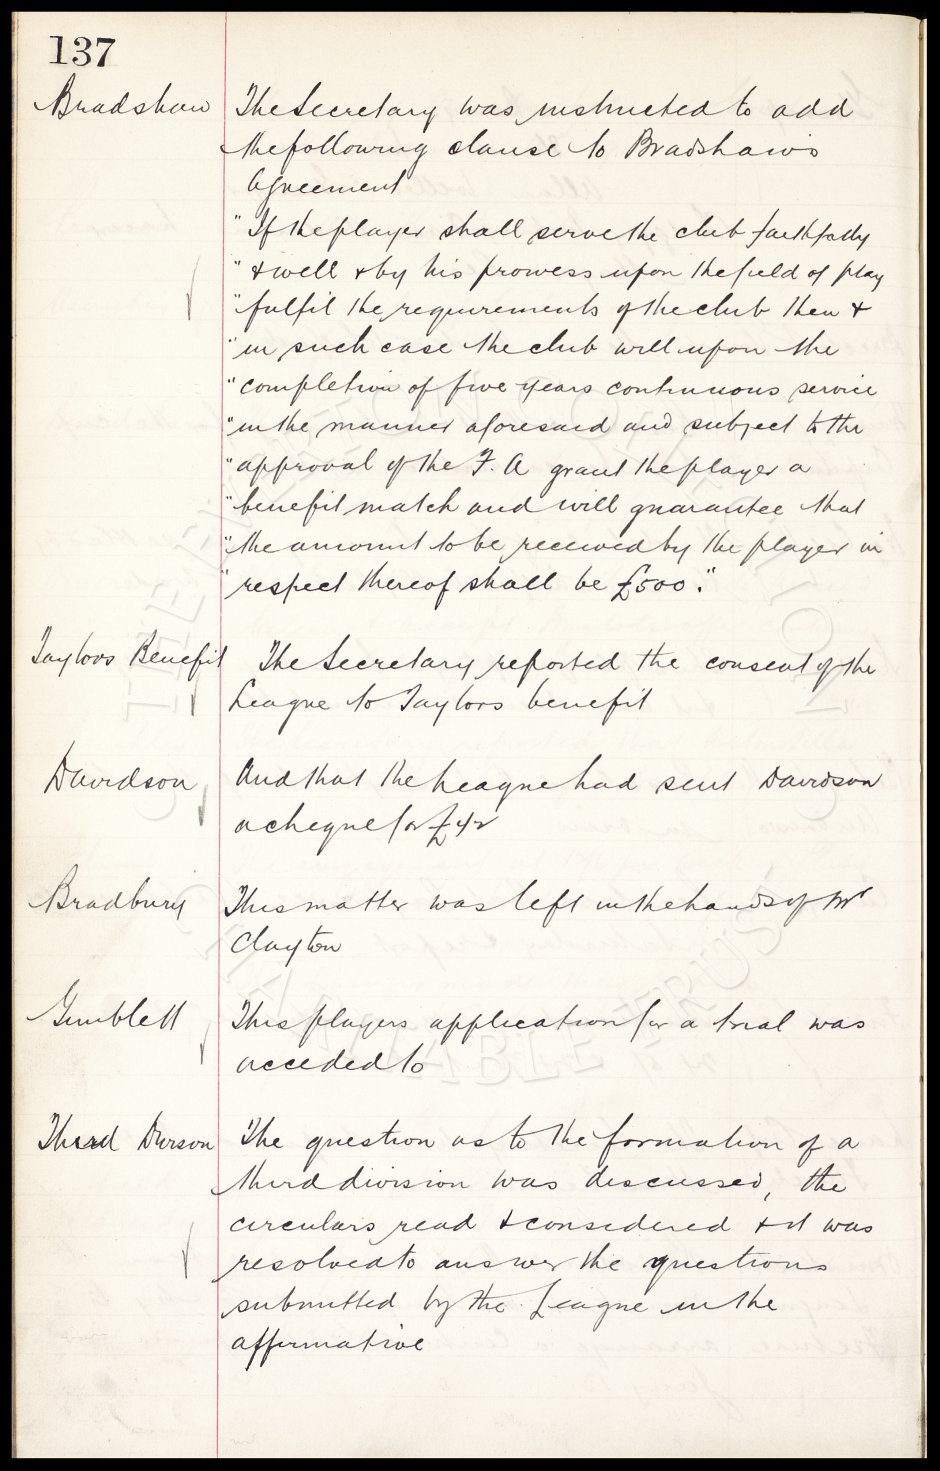 137
Bradshaw The Secretary was instructed to add
the following clause to Bradshaw's
Agreement
"If the player shall serve the club faithfully
"& well & by his prowess upon the field of play
"fulfil the requirements of the club then &
"in such case the club will upon the
"completion of five years continuous service
"in the manner aforesaid and subject to the
"approval of the F. A grant the player a
"benefit match and will guarantee that
"the amount to be received by the player in
"respect thereof shall be £500."
Taylors Benefit The Secretary reported the consent of the
League to Taylors benefit
Davidson And that the League had sent Davidson
a cheque for £42
Bradbury This matter was left in the hands of Mr
Clayton
Gimblett This players application for a trial was
acceded to
Third Divison The question as to the formation of a
third division was discussed, the
circulars read & considered & it was
resolved to answer the questions
submitted by the League in the
affirmative